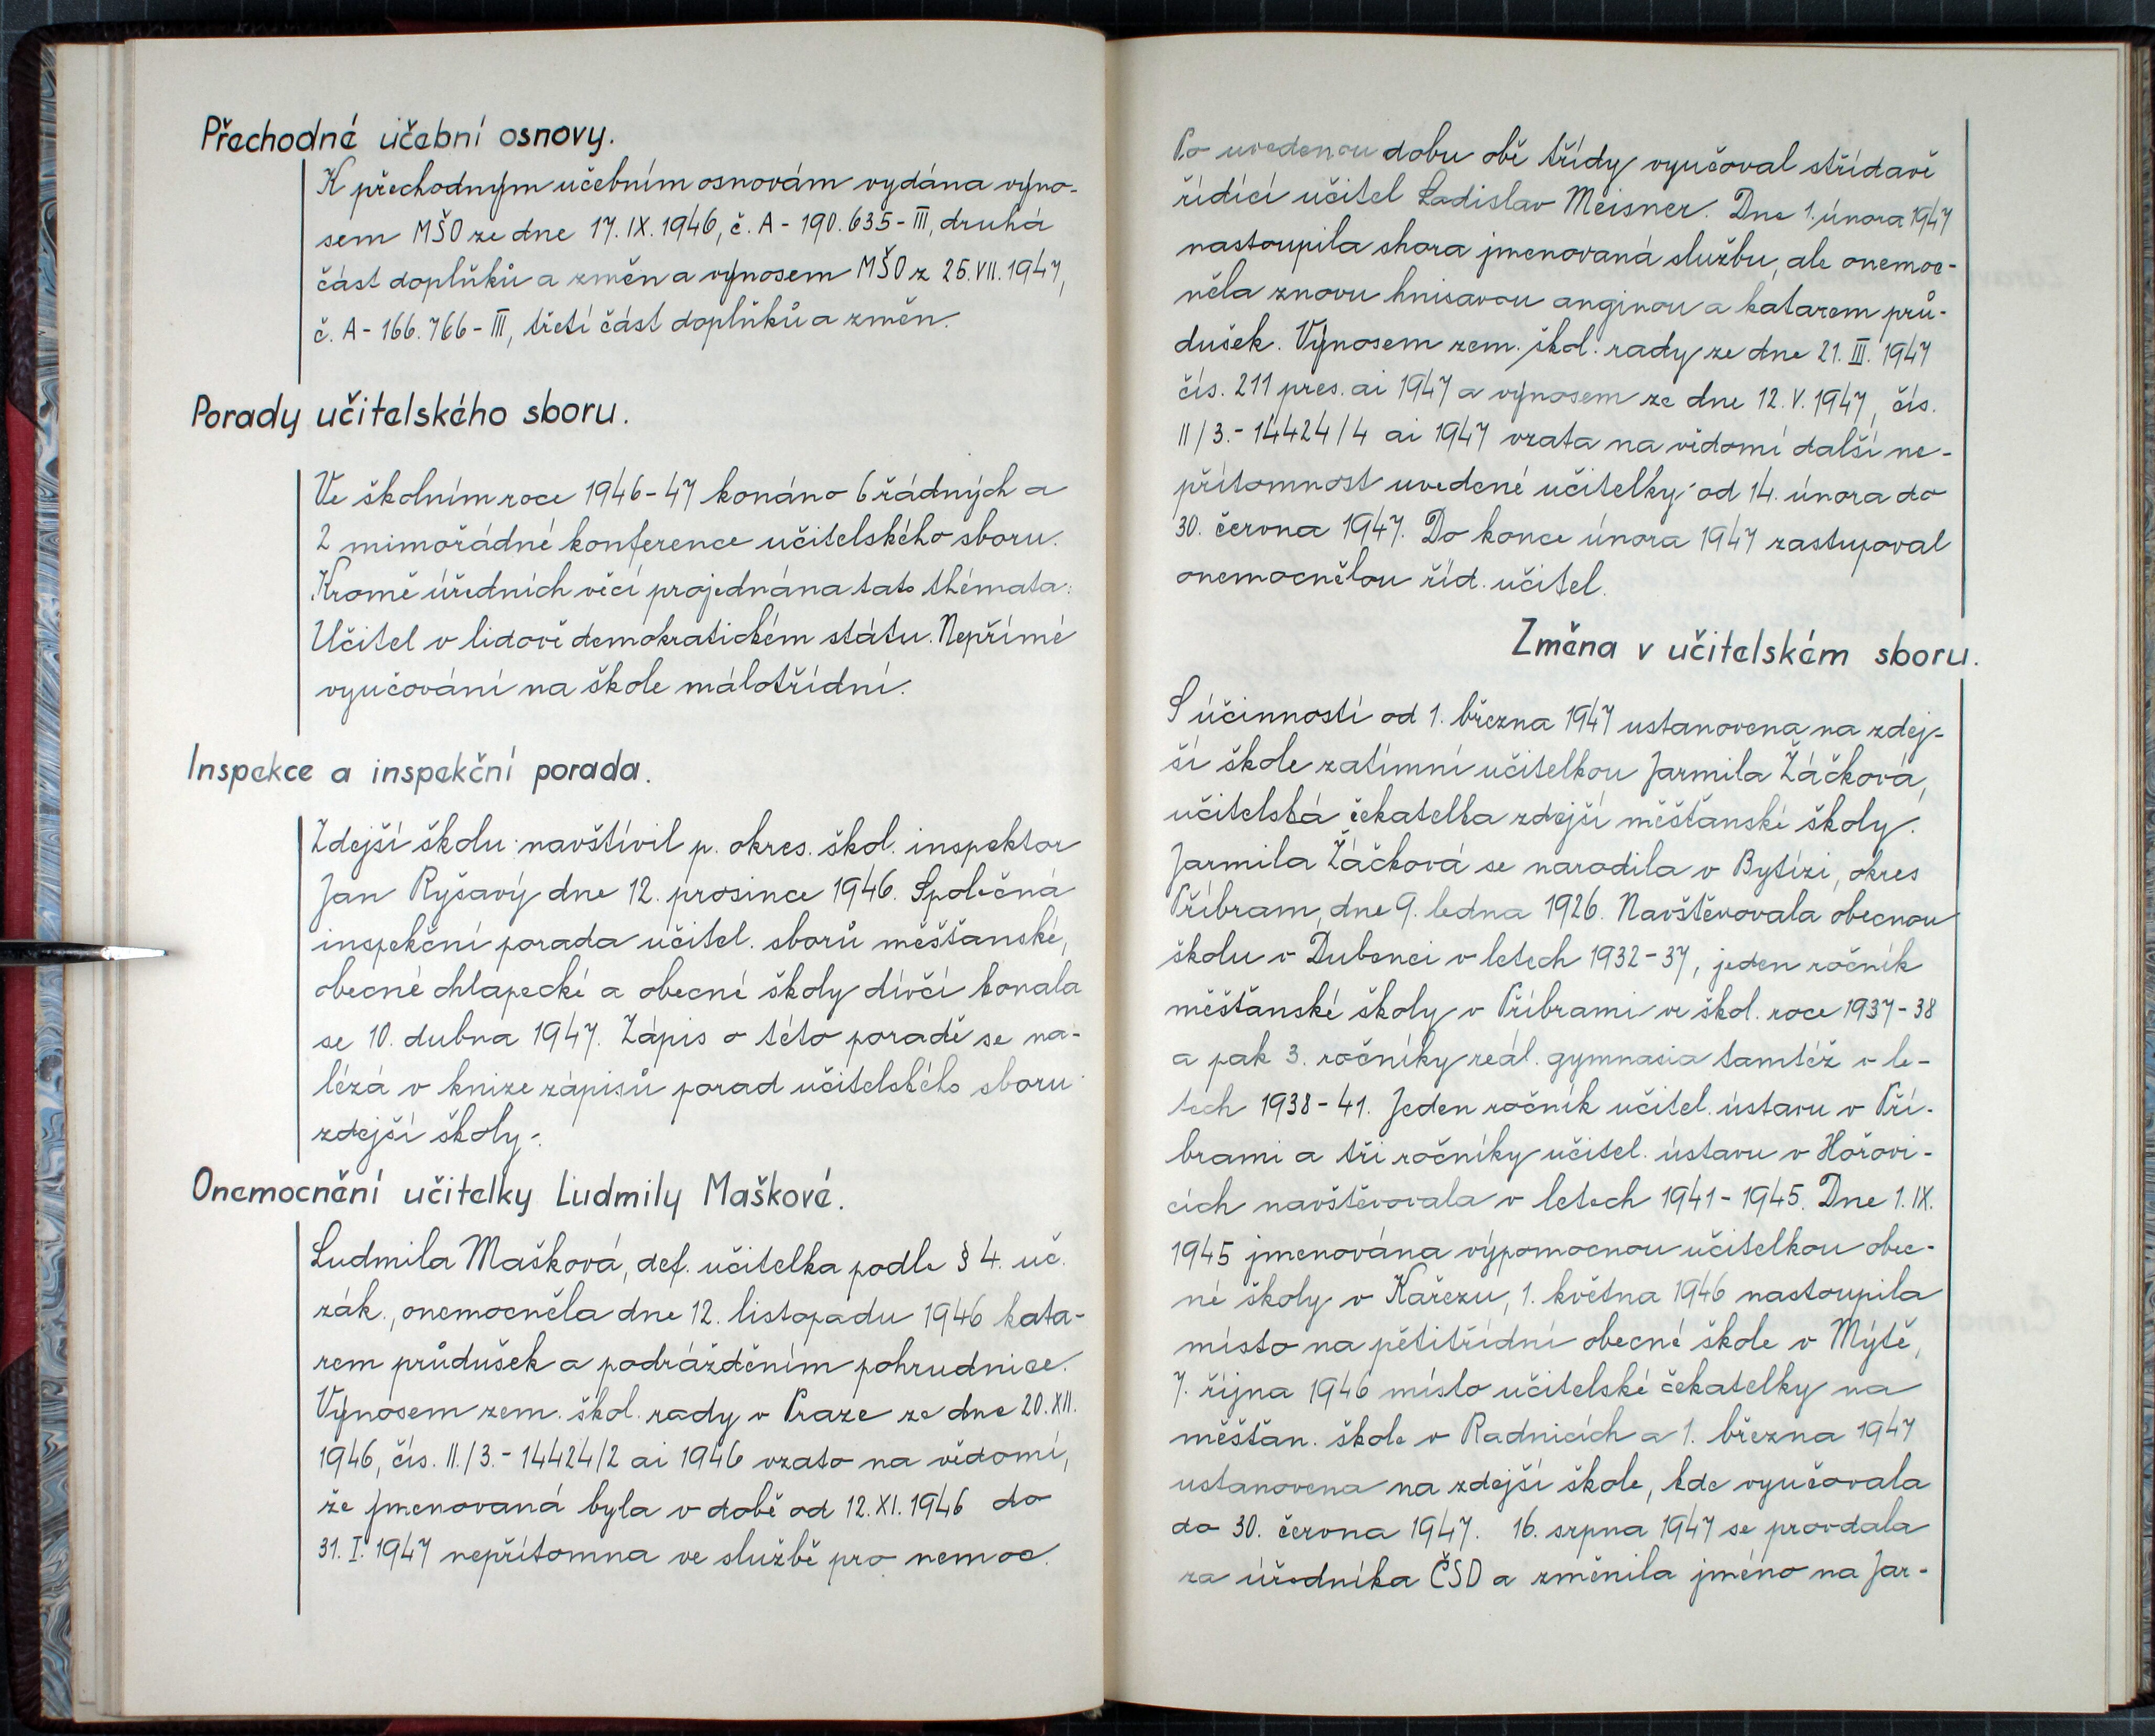 Přechodné učební osnovy.
K přechodným učebním osnovám vydána výno-
sem MŠO ze dne 17. IX. 1946, č. A - 190.635 - III, druhá
část doplňků a změn a výnosem MŠO z 25. VII. 1947,
č. A - 166.766 - III, třetí část doplňků a změn.
Porady učitelského sboru.
Ve školním roce 1946-47 konáno 6 řádných a
2 mimořádné konference učitelského sboru.
Kromě úředních věcí projednána tato thémata:
Učitel v lidově demokratickém státu. Nepřímé
vyučování na škole málotřídní.
Inspekce a inspekční porada.
Zdejší školu navštívil p. okres. škol. inspektor
Jan Ryšavý dne 12. prosince 1946. Společná
inspekční porada učitel. sborů měšťanské,
obecné chlapecké a obecné školy dívčí konala
se 10. dubna 1947. Zápis o této poradě se na-
lézá v knize zápisů porad učitelského sboru
zdejší školy.
Onemocnění učitelky Ludmily Maškové.
Ludmila Mašková, def. učitelka podle § 4. uč.
zák., onemocněla dne 12. listopadu 1946 kata-
rem průdušek a podrážděním pohrudnice.
Výnosem zem. škol. rady v Praze ze dne 20. XII.
1946, čís. II./3.- 14424/2 ai 1946 vzato na vědomí,
že jmenovaná byla v době od 12. XI. 1946 do
31. I. 1947 nepřítomna ve službě pro nemoc.
Po uvedenou dobu obě třídy vyučoval střídavě
řídící učitel Ladislav Meisner. Dne 1. února 1947
nastoupila shora jmenovaná službu, ale onemoc-
něla znovu hnisavou anginou a katarem prů-
dušek. Výnosem zem. škol. rady ze dne 21. III. 1947
čís. 211 pres. ai 1947 a výnosem ze dne 12. V. 1947, čís.
II/3.- 14424/4 ai 1947 vzata na vědomí další ne-
přítomnost uvedené učitelky od 14. února do
30. června 1947. Do konce února 1947 zastupoval
onemocnělou říd. učitel.
Změna v učitelském sboru.
S účinností od 1. března 1947 ustanovena na zdej-
ší škole zatímní učitelkou Jarmila Žáčková,
učitelská čekatelka zdejší měšťanské školy.
Jarmila Žáčková se narodila v Bytízi, okres
Příbram, dne 9. ledna 1926. Navštěvovala obecnou
školu v Dubenci v letech 1932-37, jeden ročník
měšťanské školy v Příbrami ve škol. roce 1937-38
a pak 3. ročníky reál. gymnasia tamtéž v le-
tech 1938-41. Jeden ročník učitel. ústavu v Pří-
brami a tři ročníky učitel. ústavu v Hořovi-
cích navštěvovala v letech 1941-1945. Dne 1. IX.
1945 jmenována výpomocnou učitelkou obec-
né školy v Kařezu, 1. května 1946 nastoupila
místo na pětitřídní obecné škole v Mýtě,
7. října 1946 místo učitelské čekatelky na
měšťan. škole v Radnicích a 1. března 1947
ustanovena na zdejší škole, kde vyučovala
do 30. června 1947. 16. srpna 1947 se provdala
za úředníka ČSD a změnila jméno na Jar-